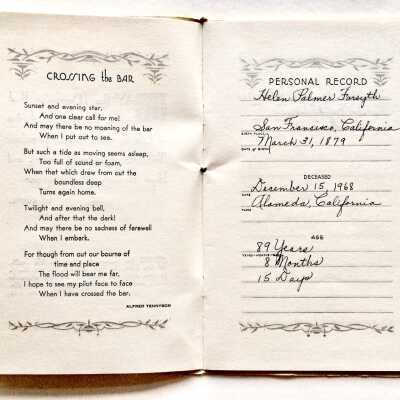 CROSSING the BAR
Sunset and evening star,
And one clear call for me!
And may there be no moaning of the bar
When I put out to sea.
But such a tide as moving seems asleep,
Too full of sound or foam,
When that which drew from out the
boundless deep
Turns again home.
Twilight and evening bell,
And after that the dark!
And may there be no sadness of farewell
When I embark.
For though from out our bourne of
time and place
The flood will bear me far,
I hope to see my pilot face to face
When I have crossed the bar.
ALFRED TENNYSON
PERSONAL RECORD
Helen Palmer Forsyth
San Francisco, California
BIRTH PLACE
March 31, 1879
DATE OF BIRTH
DECEASED
December 15, 1968
Alameda, California
AGE
89 Years
8 Months
15 Days